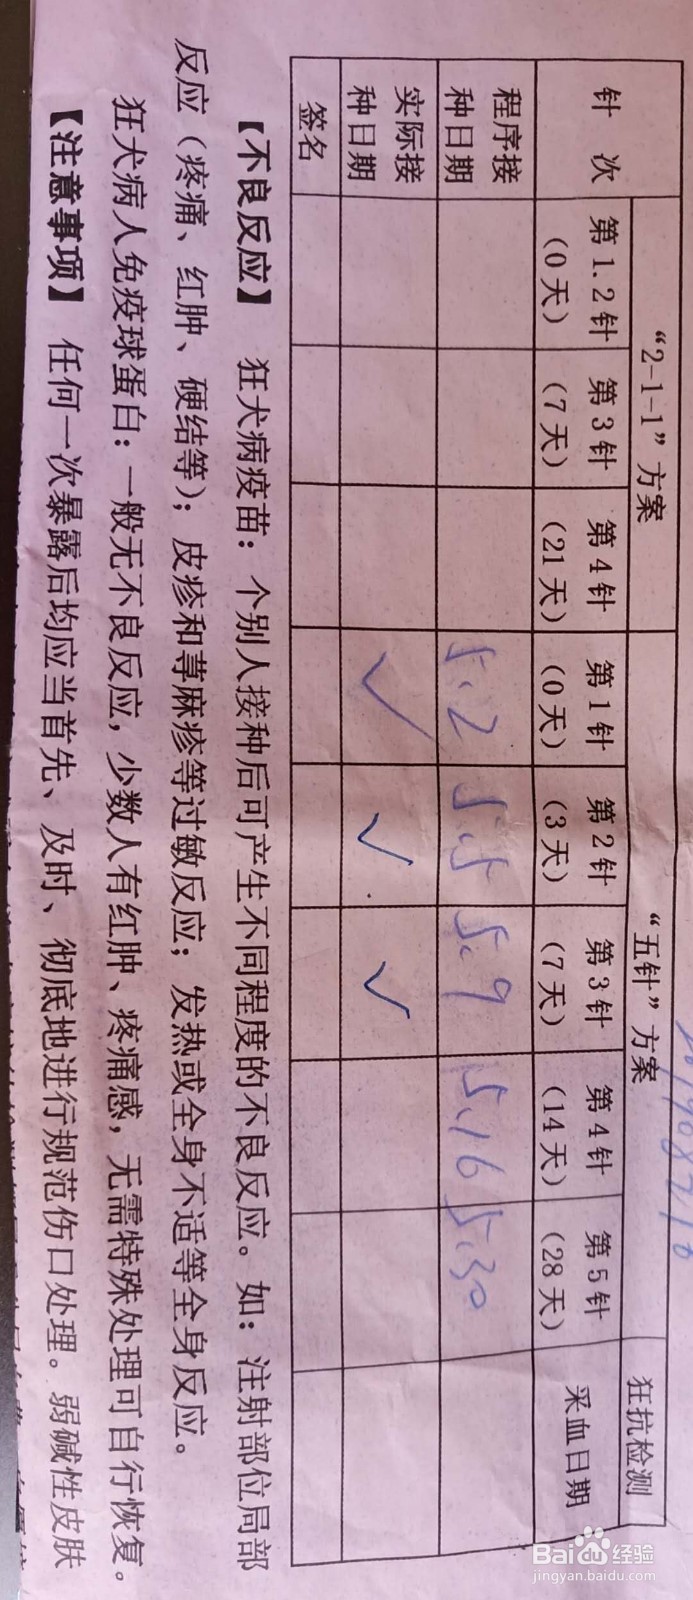 "2-1-1" 方案 "五针" 方案 狂抗检测
针 次 第1.2针 (0天) 第3针 (7天) 第4针 (21天) 第1针 (0天) 第2针 (3天) 第3针 (7天) 第4针 (14天) 第5针 (28天) 采血日期
程序接种日期 5.2 5.5 5.9 5.16 5.30
实际接种日期 ✓ ✓ ✓
签名
【不良反应】 狂犬病疫苗：个别人接种后可产生不同程度的不良反应。如：注射部位局部
反应（疼痛、红肿、硬结等）；皮疹和荨麻疹等过敏反应；发热或全身不适等全身反应。
狂犬病人免疫球蛋白：一般无不良反应，少数人有红肿、疼痛感，无需特殊处理可自行恢复。
【注意事项】 任何一次暴露后均应当首先、及时、彻底地进行规范伤口处理。弱碱性皮肤
Baidu经验
jingyan.baidu.com